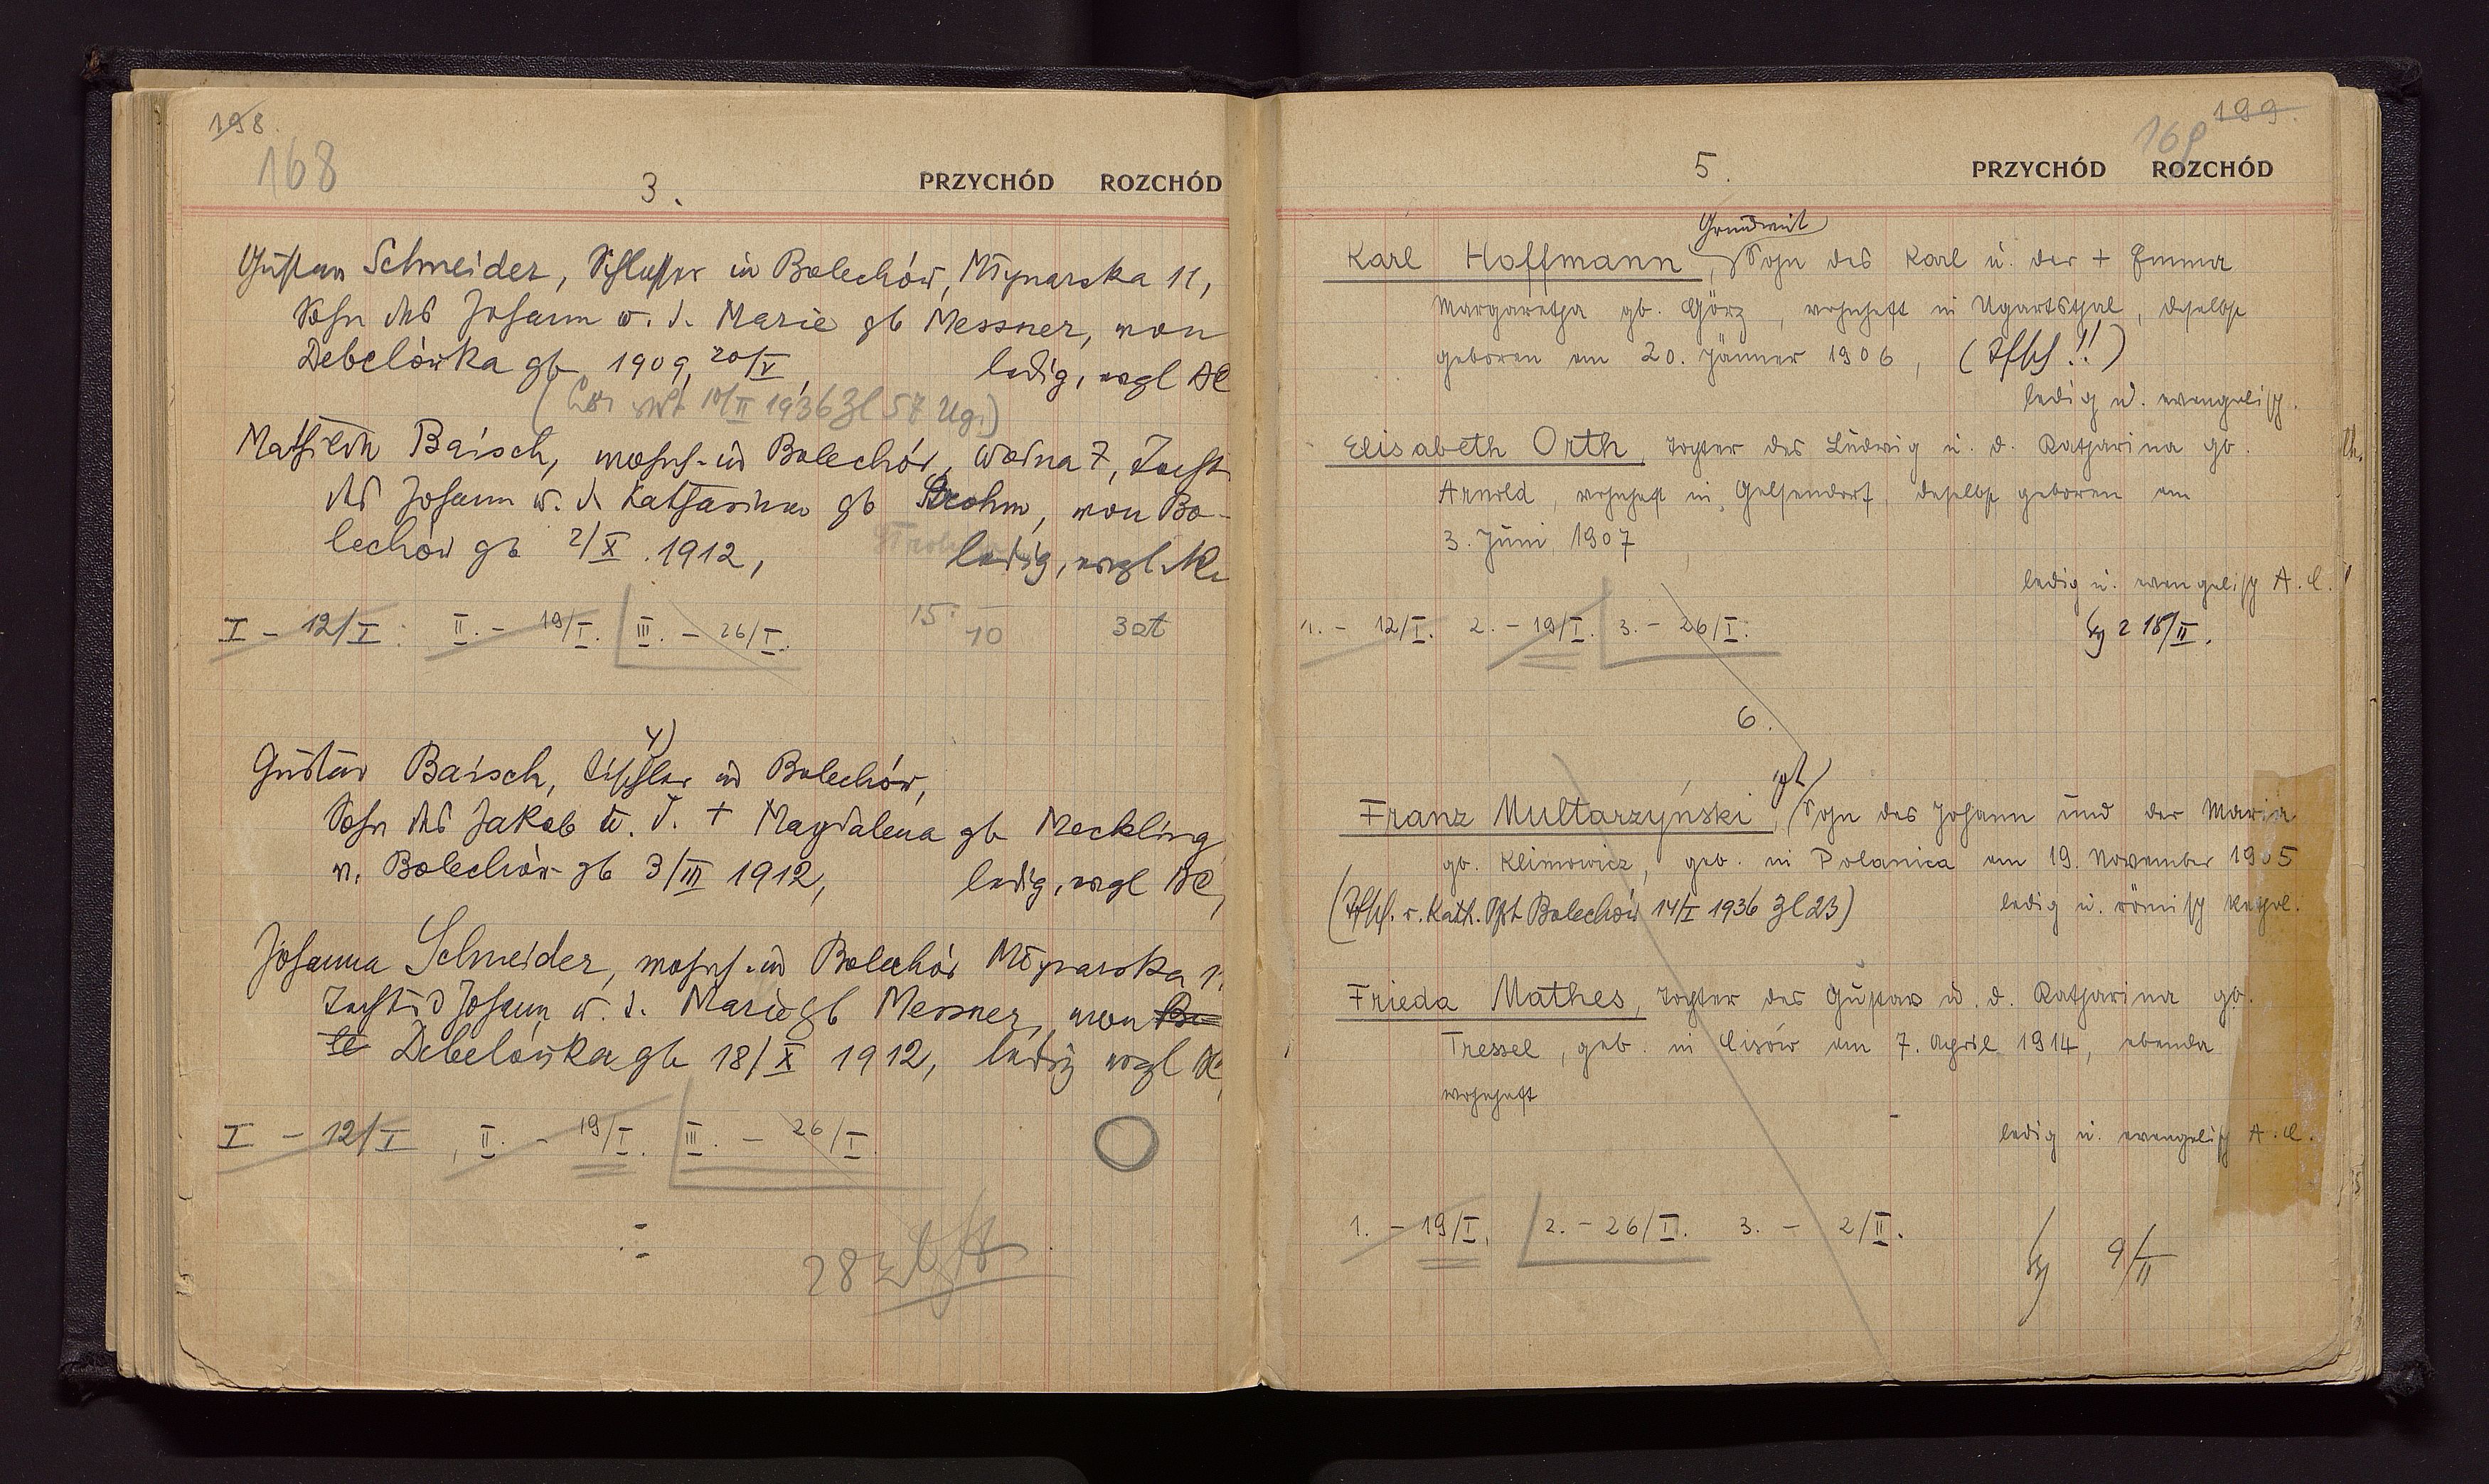 198.
168
3.
PRZYCHÓD ROZCHÓD
Gustav Schneider, Schlosser in Bolechów, Młynarska 11,
Sohn des Johann u. d. Marie gb Messner, von
Debelówka gb 1909, 20/V, ledig, evgl AC
10/II 1936 Zl 57 Ug.)
Mathilde Baisch, wohnh. in Bolechów, Wolna 7, Tocht
des Johann u. d. Katharina gb Strohm, von Bo-
lechów gb 2/X. 1912, ledig, evgl.
I – 12/I. II. – 19/I. III. – 26/I. 15 10
4)
Gustav Baisch, Tischler in Bolechów,
Sohn des Jakob u. d. + Magdalena gb Meckling
v. Bolechów gb 3/III 1912, ledig, evgl AC,
Johanna Schneider, wohnh. in Bolechów Młynarska 1
Tocht d Johann u. d. Marie gb Messner, von Bo
le Debelówka gb 18/X 1912, ledig evgl
I – 12/I, II. – 19/I. III. – 26/I.
28
199.
169
5.
PRZYCHÓD ROZCHÓD
Grundwirt
Karl Hoffmann, Sohn des Karl u. der + Emma
Margaretha gb. Görz, wohnhaft in Ugartsthal, daselbst
geboren am 20. Jänner 1906,
ledig u. evangelisch.
Elisabeth Orth, Tochter des Ludwig u. d. Katharina gb.
Arnold, wohnhaft in Gelsendorf, daselbst geboren am
3. Juni 1907
ledig u. evangelisch A.C.
1. – 12/I. 2. – 19/I. 3. – 26/I. 18/II.
6.
Franz Multarzyński, Sohn des Johann und der Maria
gb. Klimowicz, geb. in Polanica am 19. November 1905
r. Kath. Bolechów 14/I 1936 Zl 23) ledig u. römisch Kathol.
Frieda Mathes, Tochter des Gustav u. d. Katharina gb.
Tressel, geb. in Cisów am 7. April 1914, ebenda
wohnhaft
ledig u. evangelisch A.C.
1. – 19/I. 2. – 26/I. 3. – 2/II.
9/II